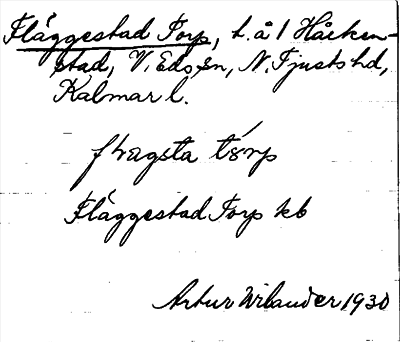 Fläggestad Torp, t. å 1 Håcken-
stad, V. Eds sn, N. Tjusts hd,
Kalmar l.
flvagsta tårp
Fläggestad Torp kb
Artur Wilander 1930